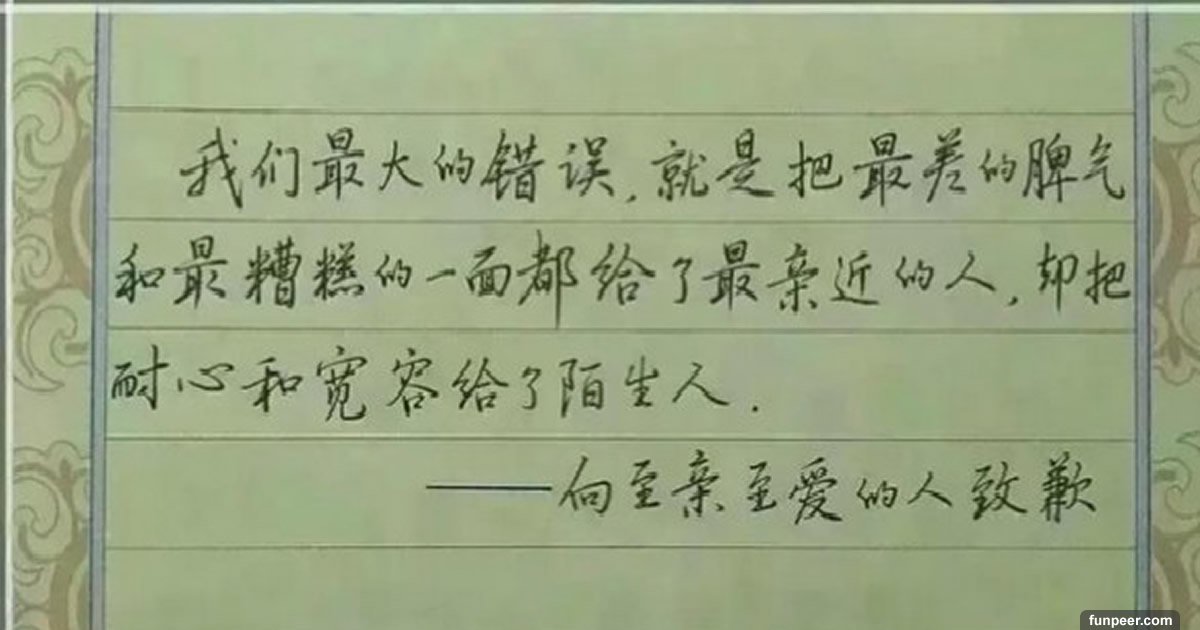 我们最大的错误,就是把最差的脾气
和最糟糕的一面都给了最亲近的人,却把
耐心和宽容给了陌生人.
——向至亲至爱的人致歉
funpeer.com